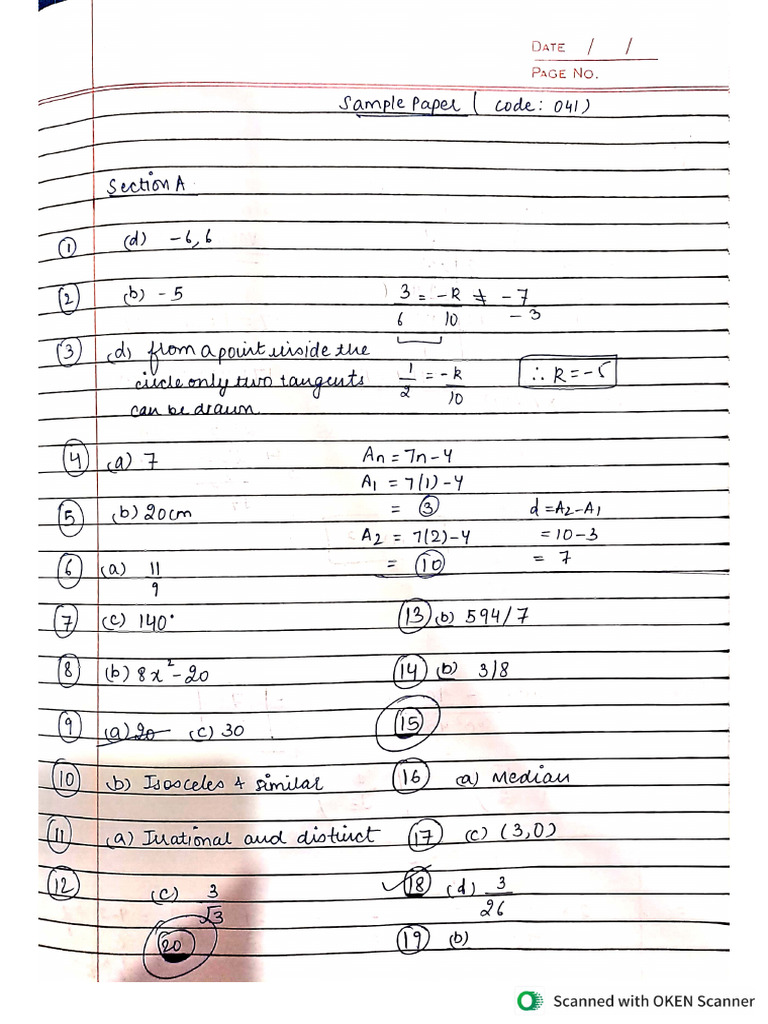 DATE / /
PAGE NO.
Sample Paper ( code: 041)
Section A
① (d) -6,6
② (b) -5
3/6 = -k/10 ≠ -7/-3
③ (d) from a point inside the
circle only two tangents
can be drawn.
1/2 = -k/10 ∴ k = -5
④ (a) 7
An = 7n-4
A1 = 7(1)-4
= ③
⑤ (b) 20cm
A2 = 7(2)-4
= ⑩
d = A2-A1
= 10-3
= 7
⑥ (a) 11/9
⑦ (c) 140°
⑧ (b) 8x²-20
⑨ (a) 20 (c) 30
⑩ b) Isosceles & similar
⑪ (a) Irrational and distinct
⑫ (c) 3/√3
⑳
⑬ (b) 594/7
⑭ (b) 3/8
⑮
⑯ (a) Median
⑰ (c) (3,0)
✓⑱ (d) 3/26
⑲ (b)
Scanned with OKEN Scanner